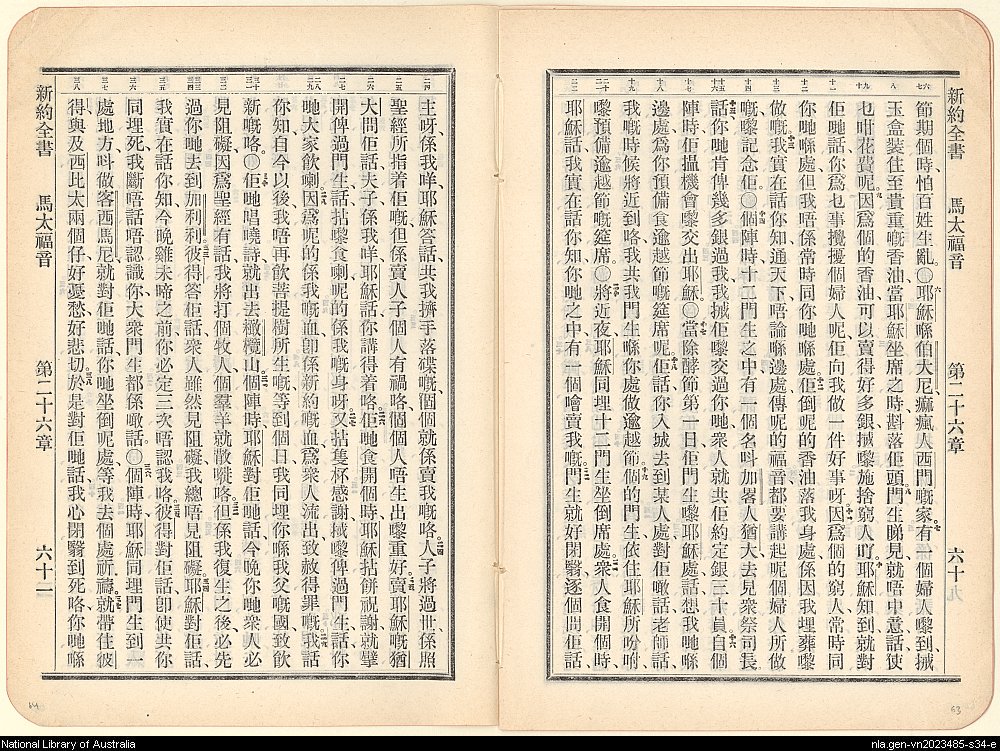 新約全書 馬太福音 第二十六章
節期個時怕百姓生亂〇耶穌喺伯大尼痲瘋人西門嘅家有一個婦人嚟到搣
玉盒裝住至貴重嘅香油當耶穌坐席之時斟落佢頭門生睇見就唔中意話使
乜咁花費呢因爲個的香油可以賣得好多銀搣嚟施捨窮人吖耶穌知到就對
佢哋話你爲乜事攪擾個婦人呢佢向我做一件好事呀因爲個的窮人常時同
你哋喺處但我唔係常時同你哋喺處佢倒呢的香油落我身處係因我埋葬嚟
做嘅我實在話你知通天下唔論喺邊處傳呢的福音都要講起呢個婦人所做
嘅嚟記念佢〇個陣時十二門生之中有一個名呌加畧人猶大去見衆祭司長
話你哋肯俾幾多銀過我我搣佢嚟交過你哋衆人就共佢約定銀三十員自個
陣時佢搵機會嚟交出耶穌〇當除酵節第一日佢門生嚟耶穌處話想我哋喺
邊處爲你預備食逾越節嘅筵席呢佢話你入城去到某人處對佢噉話老師話
我嘅時候將近到咯我共我門生喺你處做逾越節個的門生依住耶穌所吩咐
嚟預備逾越節嘅筵席〇將近夜耶穌同埋十二門生坐倒席處衆人食開個時
耶穌話我實在話你知你哋之中有一個噲賣我嘅門生就好閉翳逐個問佢話
主呀係我咩耶穌答話共我擠手落碟嘅個個就係賣我嘅咯人子將過世係照
聖經所指着佢嘅但係賣人子個人有禍咯個個人唔生出嚟重好賣耶穌嘅猶
大問佢話夫子係我咩耶穌話你講得着咯佢哋食開個時耶穌拈餅祝謝就擘
開俾過門生話拈嚟食喇呢的係我嘅身呀又拈隻杯感謝搣嚟俾過門生話你
哋大家飲喇因爲呢的係我嘅血卽係新約嘅血爲衆人流出致赦得罪嘅我話
你知自今以後我唔再飲菩提樹所生嘅等到個日我同埋你喺我父嘅國致飲
新嘅咯〇佢哋唱曉詩就出去橄欖山個陣時耶穌對佢哋話今晚你哋衆人必
見阻礙因爲聖經有話我將打個牧人個羣羊就散嘥咯但係我復生之後必先
過你哋去到加利利彼得答佢話衆人雖然見阻礙我總唔見阻礙耶穌對佢話
我實在話你知今晚雞未啼之前你必定三次唔認我咯彼得對佢話卽使共你
同埋死我斷唔話唔認識你大衆門生都係噉話〇個陣時耶穌同埋門生到一
處地方呌做客西馬尼就對佢哋話你哋坐倒呢處等我去個處祈禱就帶住彼
得與及西比太兩個仔好憂愁好悲切於是對佢哋話我心閉翳到死咯你哋喺
新約全書 馬太福音 第二十六章
National Library of Australia
nla.gen-vn2023485-s34-e